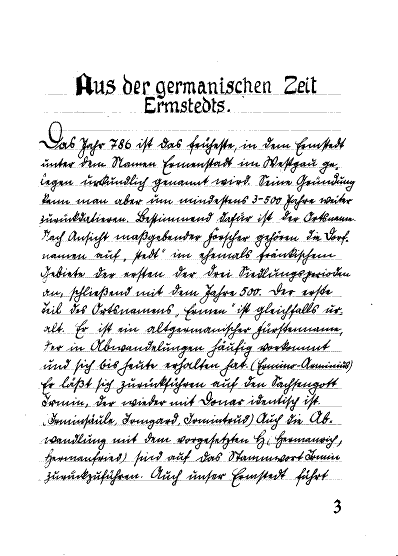 Aus der germanischen Zeit
Ermstedts.
Das Jahr 786 ist das früheste, in dem Ermstedt
unter dem Namen Ermenstadt im Westgau ge-
legen urkundlich genannt wird. Seine Gründung
kann man aber um mindestens 3-500 Jahre weiter
zurückdatieren. Bestimmend dafür ist der Ortsname.
Nach Ansicht maßgebender Forscher gehören die Dorf-
namen auf „stedt" im ehemals fränkischem
Gebiete der ersten der drei Siedlungsperioden
an, schließend mit dem Jahre 500. Der erste
Teil des Ortsnamens „Ermen" ist gleichfalls ur-
alt. Er ist ein altgermanischer Fürstenname,
der in Abwandelungen häufig vorkommt
und sich bis heute erhalten hat. (Armin-Arminius)
Er läßt sich zurückführen auf den Sachsengott
Irmin, der wieder mit Donar identisch ist.
(Irminsäule, Irmgard, Irmintrud) Auch die Ab-
wandlung mit dem vorgesetzten H (Hermanrich,
Hermanfried) sind auf das Stammwort Irmin
zurückzuführen. Auch unser Ermstedt führt
3